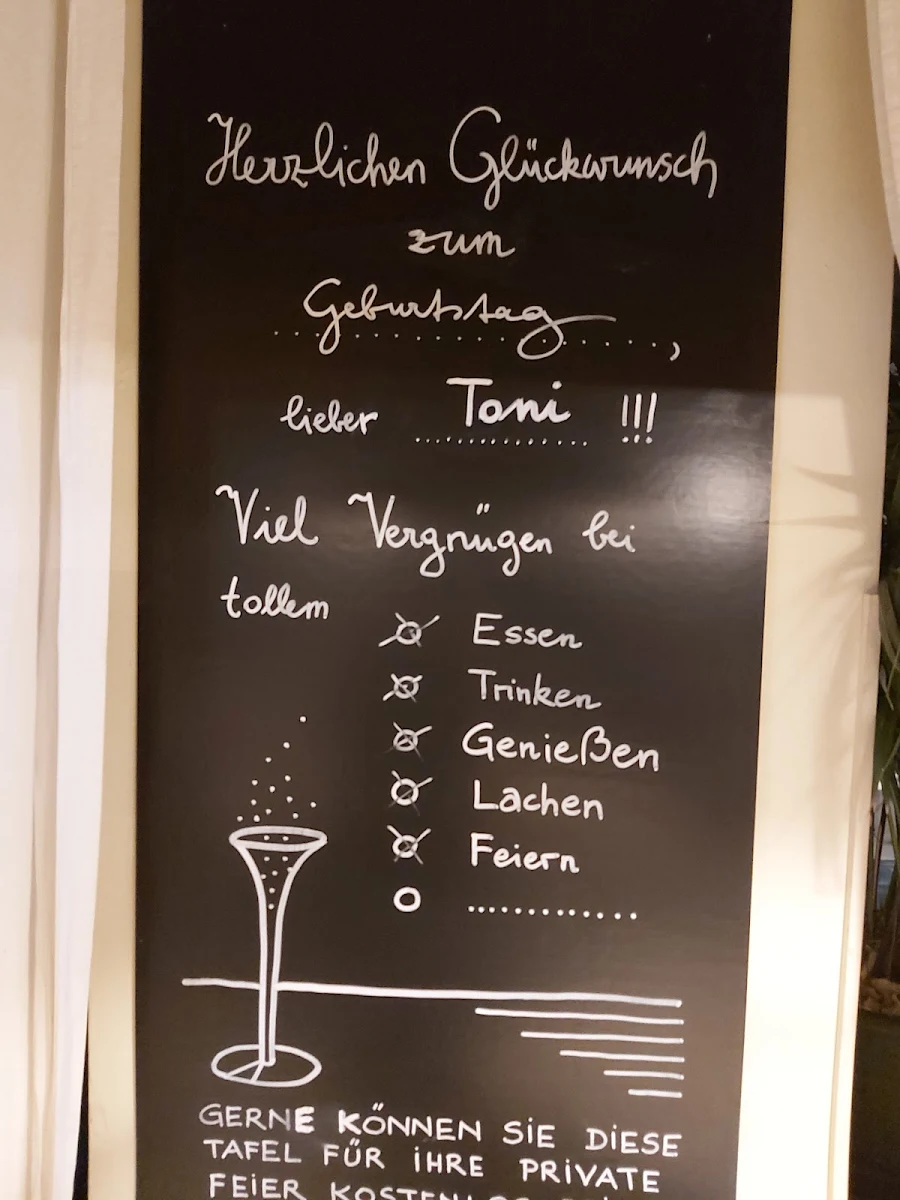 Herzlichen Glückwunsch
zum
Geburtstag,
lieber Toni !!!
Viel Vergnügen bei
tollem
Essen
Trinken
Genießen
Lachen
Feiern
GERNE KÖNNEN SIE DIESE
TAFEL FÜR IHRE PRIVATE
FEIER